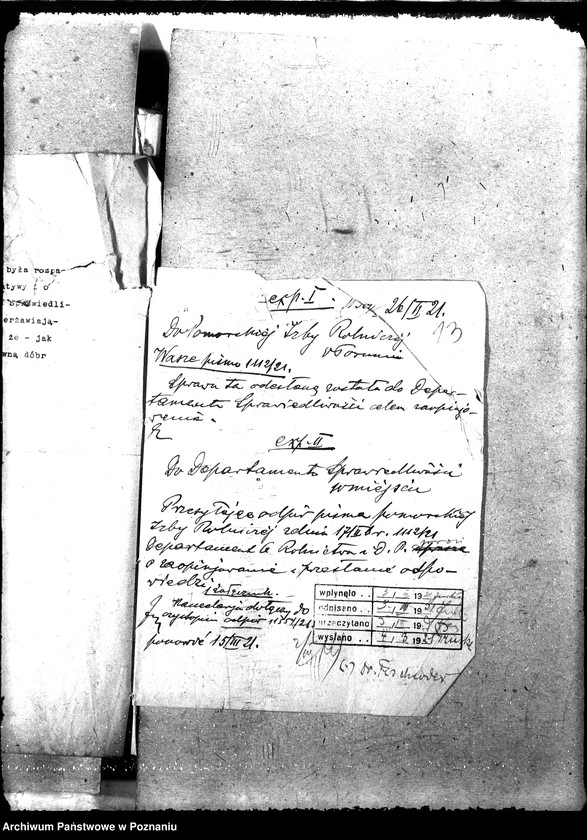 była rozpa-
o
Spawiedli-
erzawiają-
że - jak
wną dóbr
exp. I.
26/II 21.
13
Do Pomorskiej Izby Rolniczej
w Toruniu
Wasze pismo 1112/21.
Sprawa ta odesłaną została do Depar-
tamentu Sprawiedliwości celem zaopinjo-
wania.
exp. II
Do Departamentu Sprawiedliwości
w miejscu
Przesyłając odpis pisma pomorskiej
Izby Rolniczej z dnia 17/II br. 1112/21
Departament Rolnictwa i D. P.
o zaopinjowanie i przesłanie odpo-
wiedzi.
1 załącznik.
Kancelarja dołączy do
odpis
ponowić 15/III 21.
wpłynęło . . 3 19
odpisano . . 3 III 19
przeczytano 3 III 19
wysłano . . 4 3 19
(-) Dr.
Archiwum Państwowe w Poznaniu